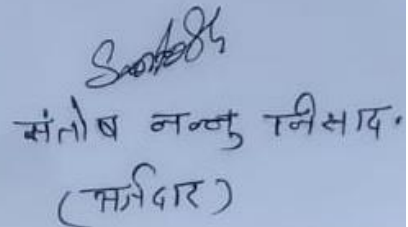 Santosh
संतोष नन्नु निसाद.
(अर्जदार)